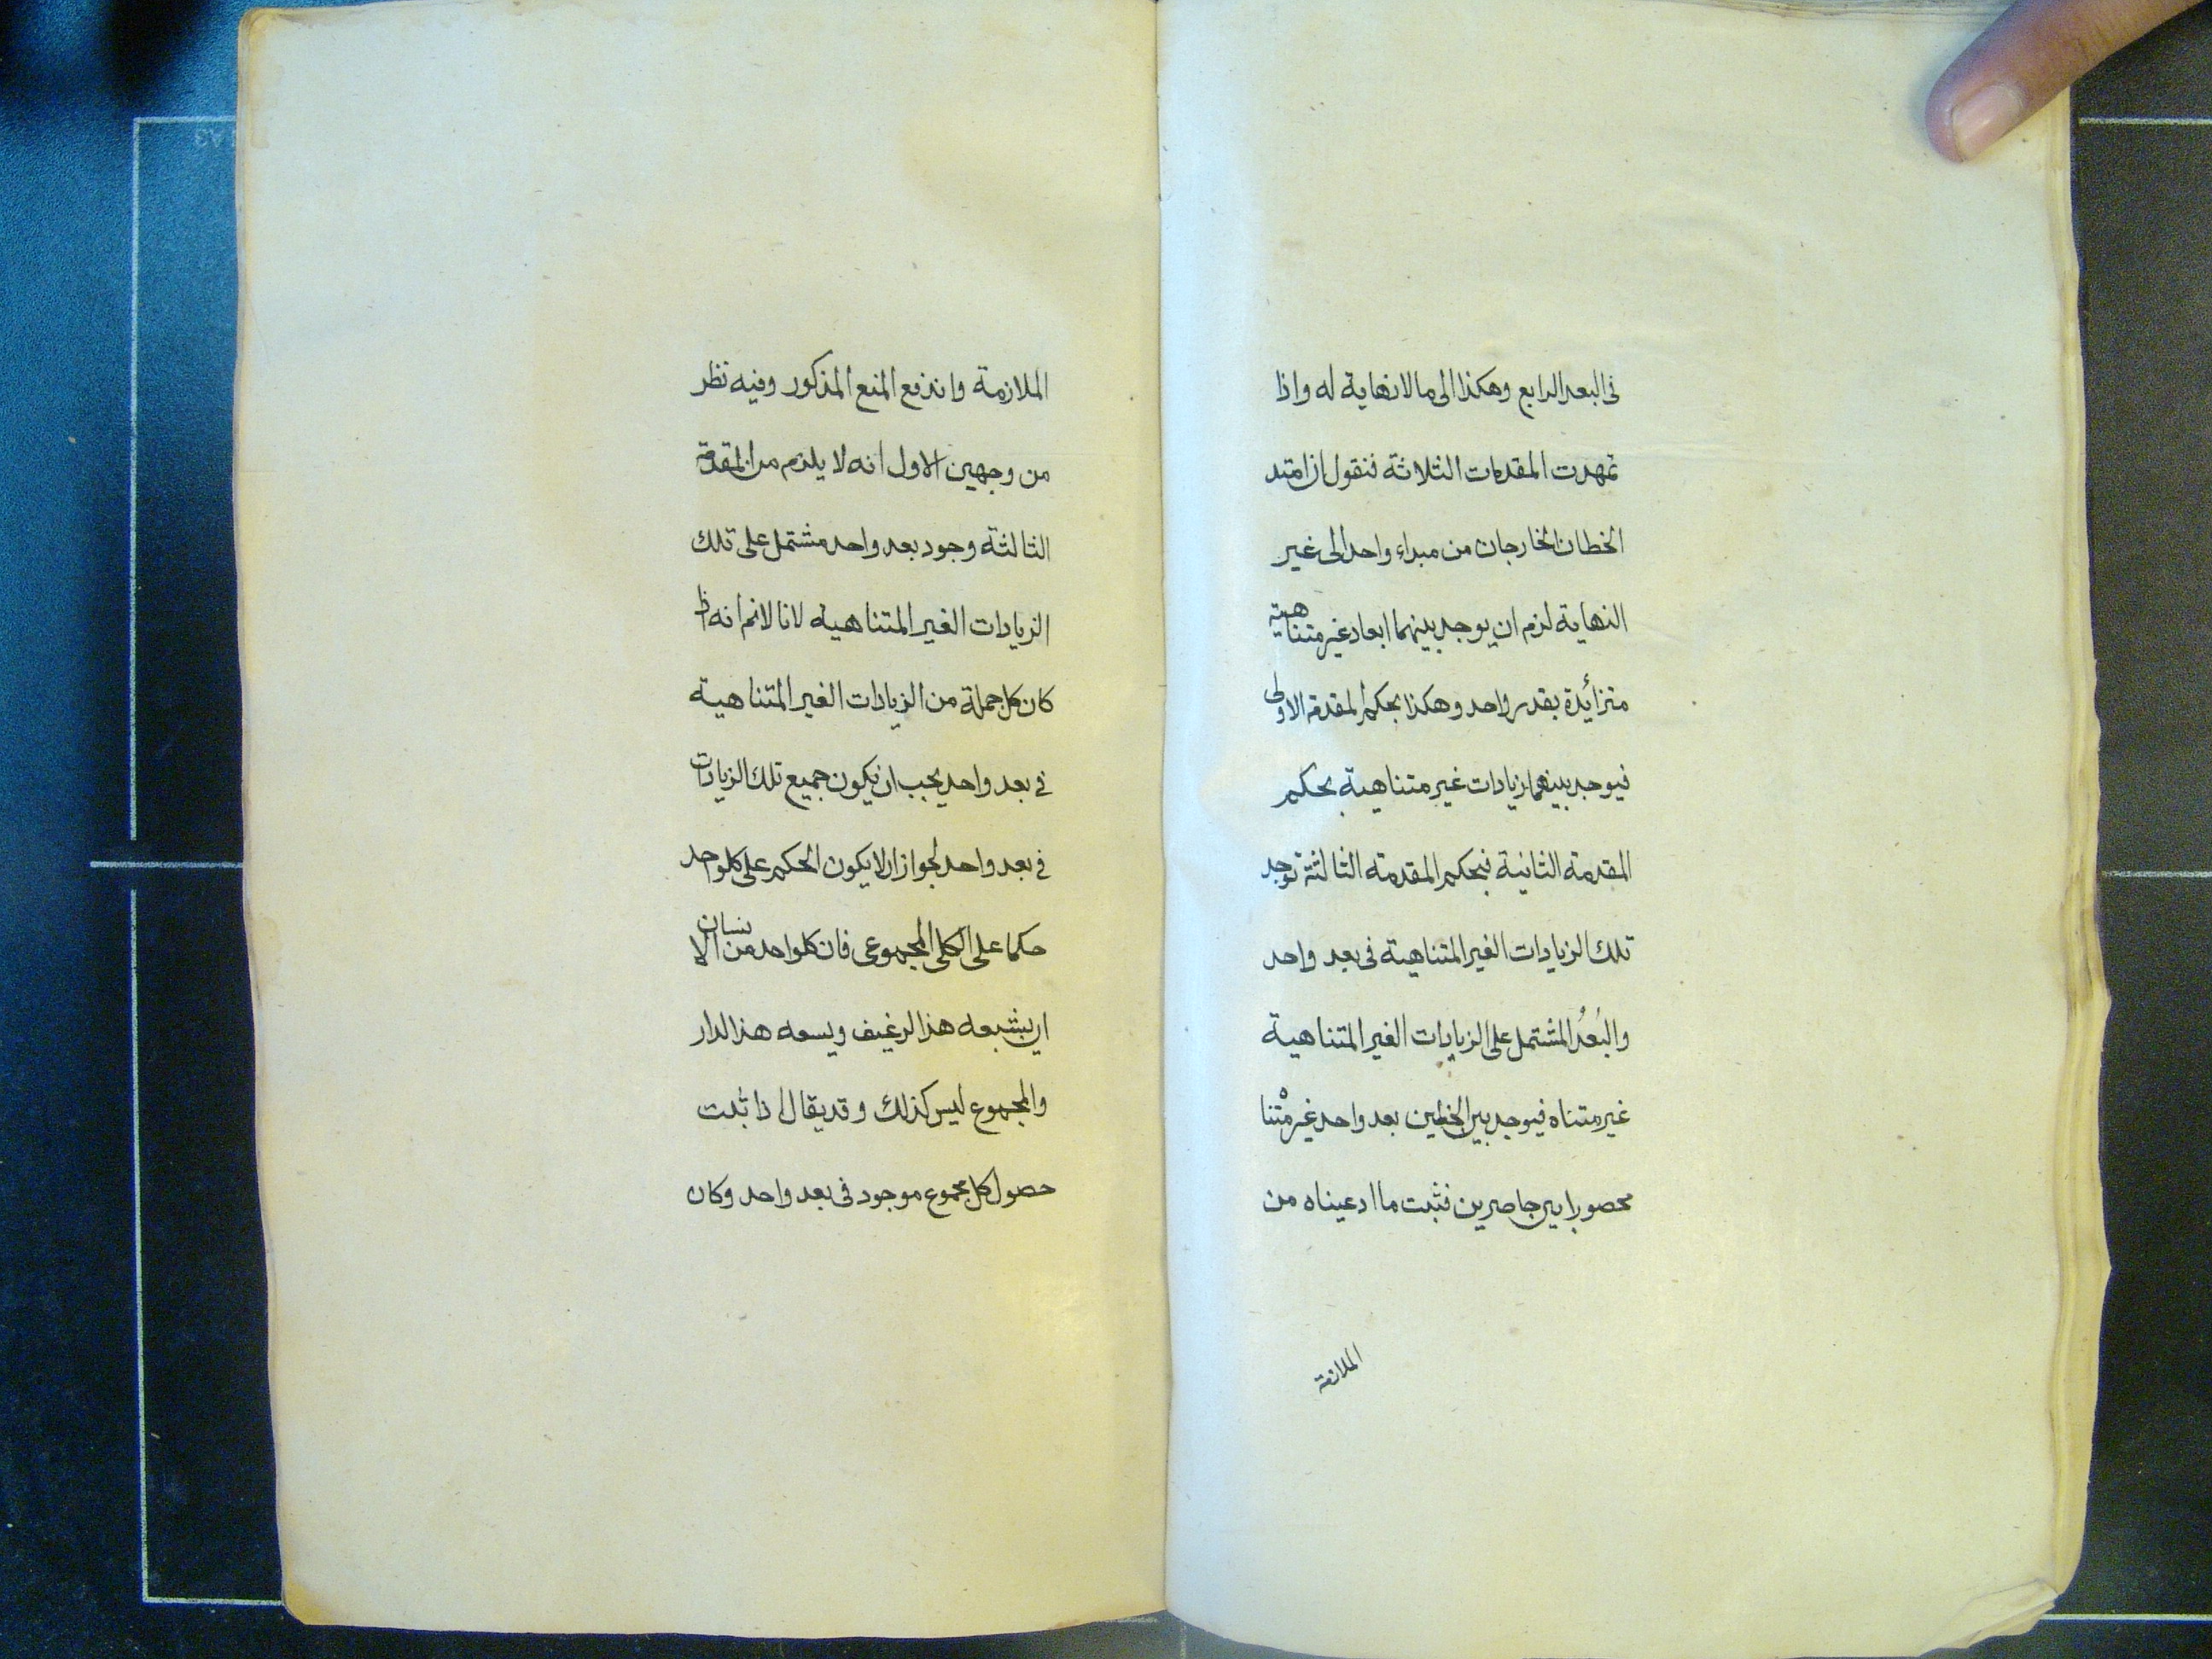 فى البعد الرابع وهكذا الى مالانهاية له واذا
تمهدت المقدمات الثلاثة فنقول ان امتد
الخطان الخارجان من مبداء واحد الى غير
النهاية لزم ان يوجد بينهما ابعاد غير متناهية
متزائدة بقدر واحد وهكذا بحكم المقدمة الاولى
فيوجد بينهما زيادات غير متناهية بحكم
المقدمة الثانية فبحكم المقدمة الثالثة توجد
تلك الزيادات الغير المتناهية فى بعد واحد
والبُعدُ المشتمل على الزيادات الغير المتناهية
غير متناه فيوجد بين الخطين بعد واحد غير متناه
محصورا بين حاصرين فثبت ما ادعيناه من
الملازمة
الملازمة واندفع المنع المذكور وفيه نظر
من وجهين الاول انه لا يلزم من المقدمة
الثالثة وجود بعد واحد مشتمل على تلك
الزيادات الغير المتناهية لانا لانم انه اذا
كان كل جملة من الزيادات الغير المتناهية
فى بعد واحد يجب ان يكون جميع تلك الزيادات
فى بعد واحد لجواز ان لا يكون الحكم على كلواحد
حكما على الكلى المجموعى فان كلواحد من الانسان
ان يشبعه هذا الرغيف ويسعه هذا الدار
والمجموع ليس كذلك وقد يقال اذا ثبت
حصول كل مجموع موجود فى بعد واحد وكان